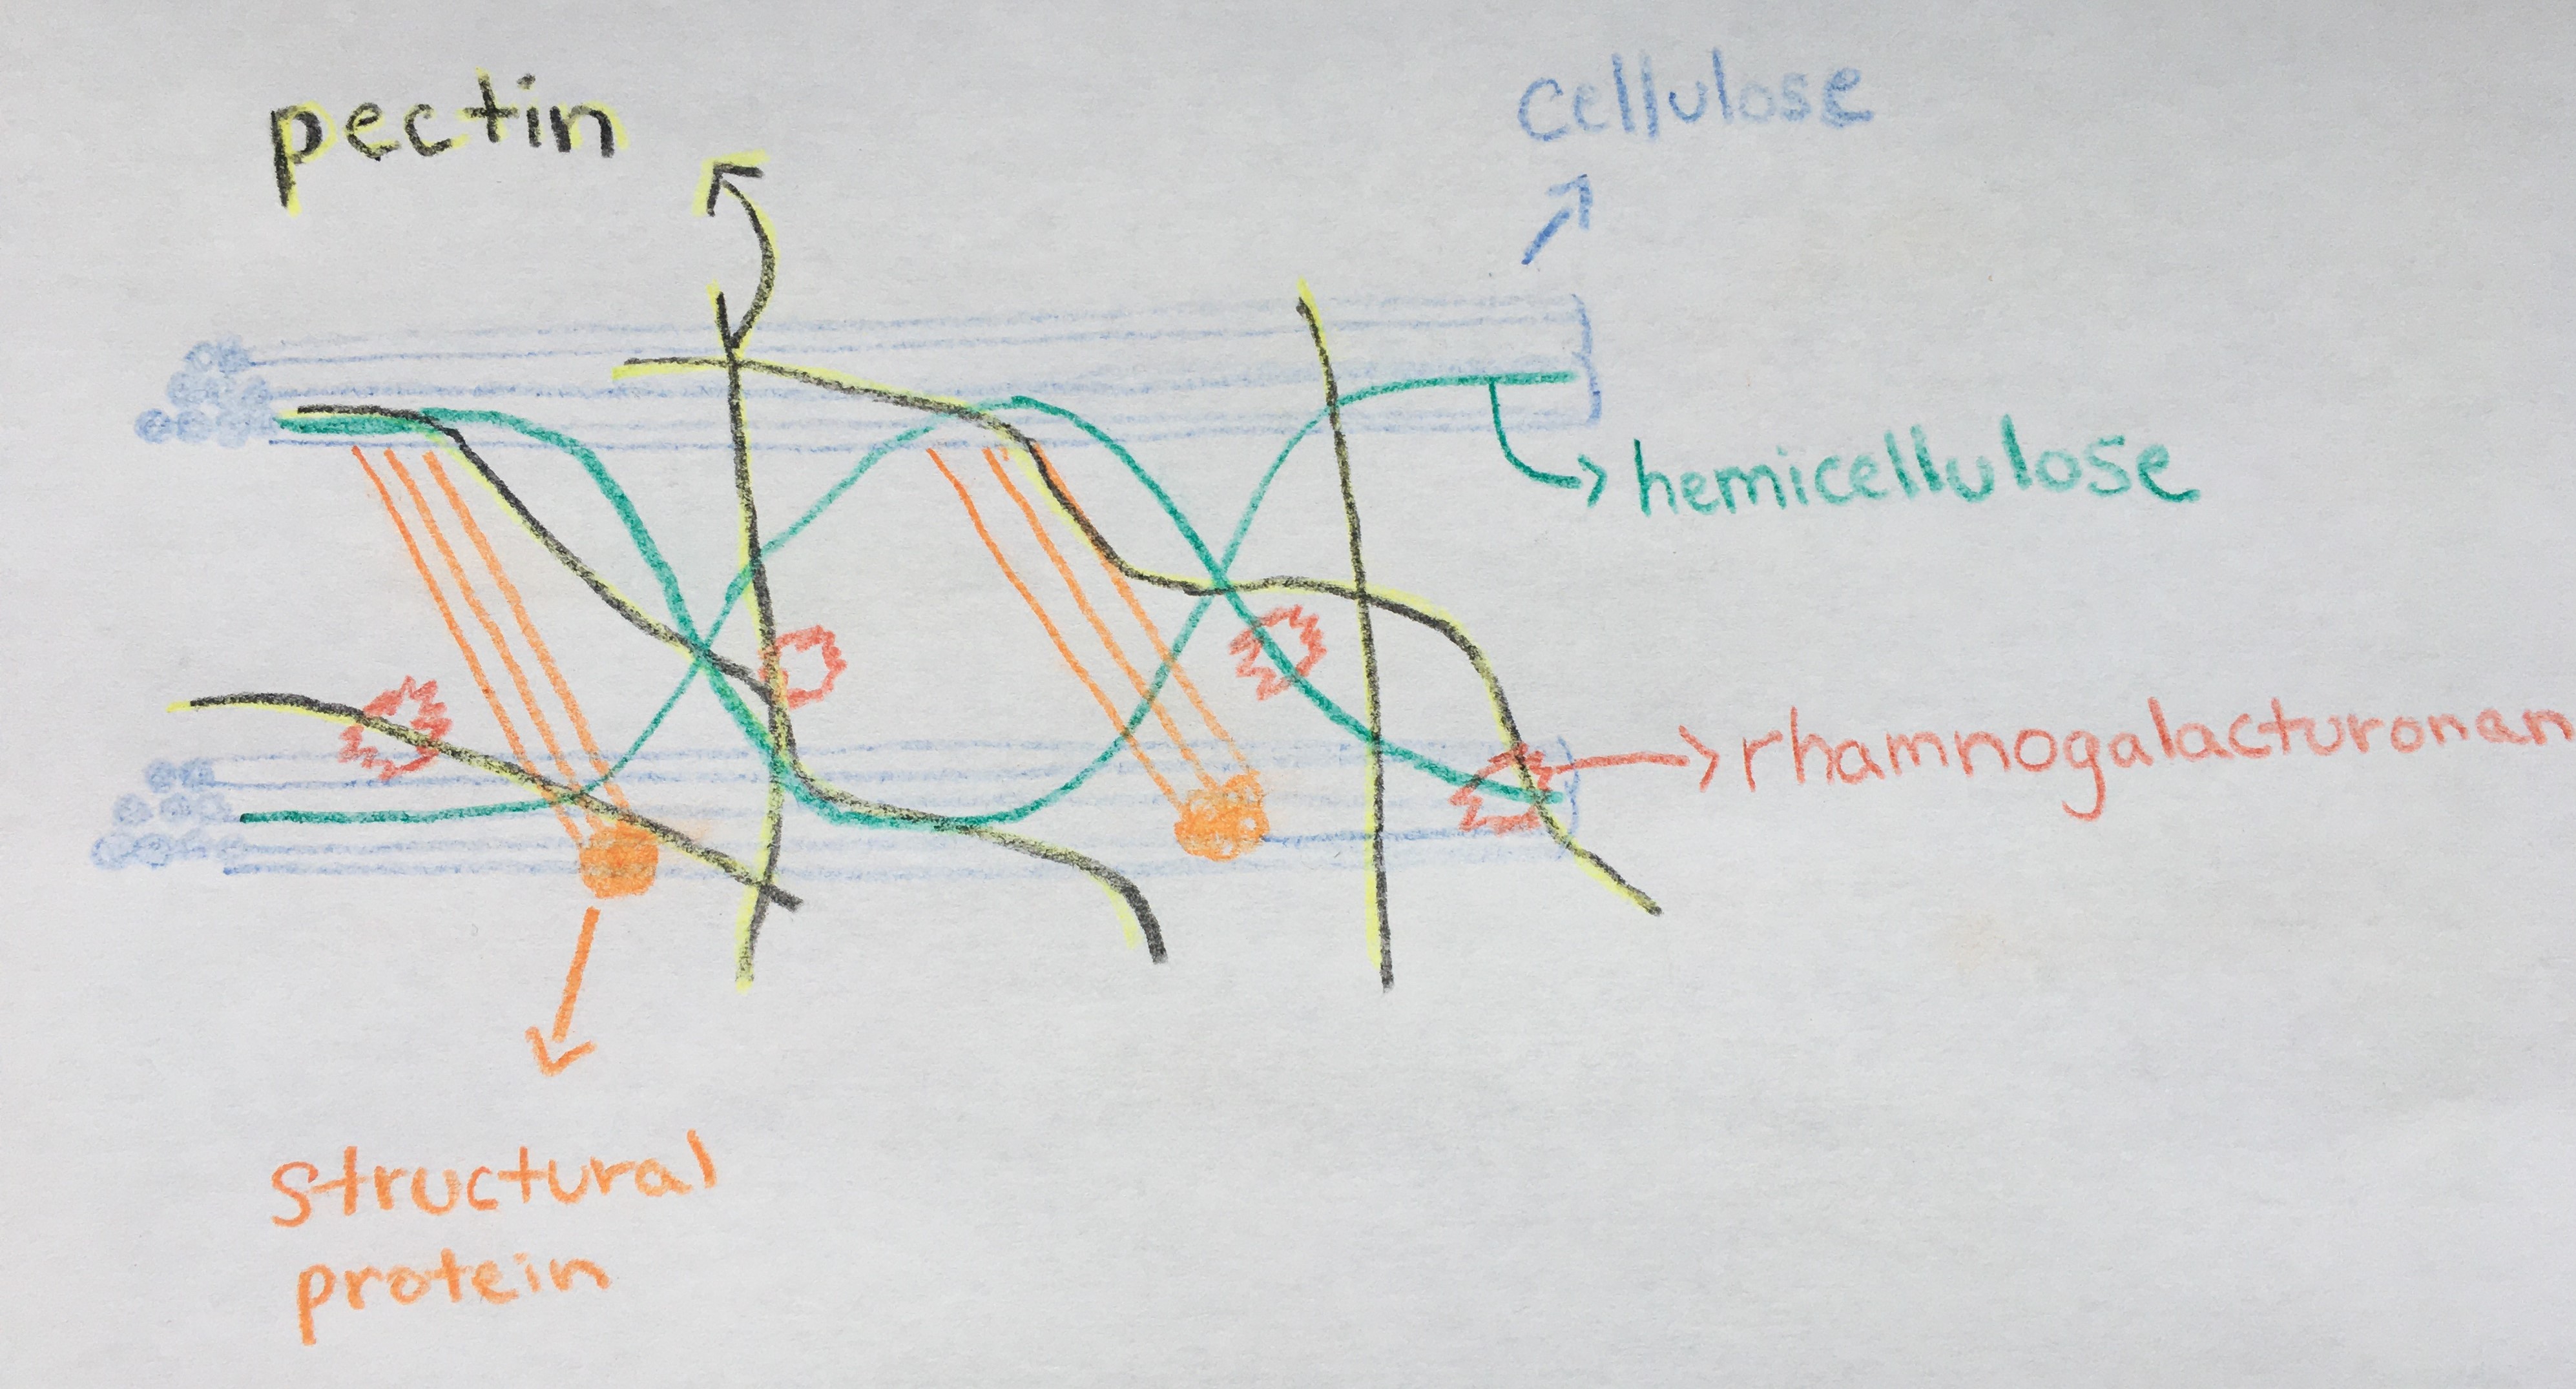 pectin
cellulose
hemicellulose
rhamnogalacturonan
structural
protein